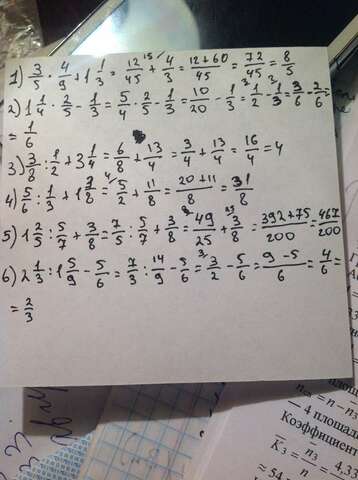 1) 3/5 · 4/9 + 1 1/3 = 12/45 + 4/3 = 12+60/45 = 72/45 = 8/5
2) 1 1/4 · 2/5 - 1/3 = 5/4 · 2/5 - 1/3 = 10/20 - 1/3 = 1/2 - 1/3 = 3/6 - 2/6 =
= 1/6
3) 3/8 : 1/2 + 3 1/4 = 6/8 + 13/4 = 3/4 + 13/4 = 16/4 = 4
4) 5/6 : 1/3 + 1 3/8 = 5/2 + 11/8 = 20+11/8 = 31/8
5) 1 2/5 : 5/7 + 3/8 = 7/5 : 5/7 + 3/8 = 49/25 + 3/8 = 392+75/200 = 467/200
6) 2 1/3 : 1 5/9 - 5/6 = 7/3 : 14/9 - 5/6 = 3/2 - 5/6 = 9-5/6 = 4/6 =
= 2/3
n = n - n
площад
Коэффициент
K3 = n3/n = 4,33
≈ 54